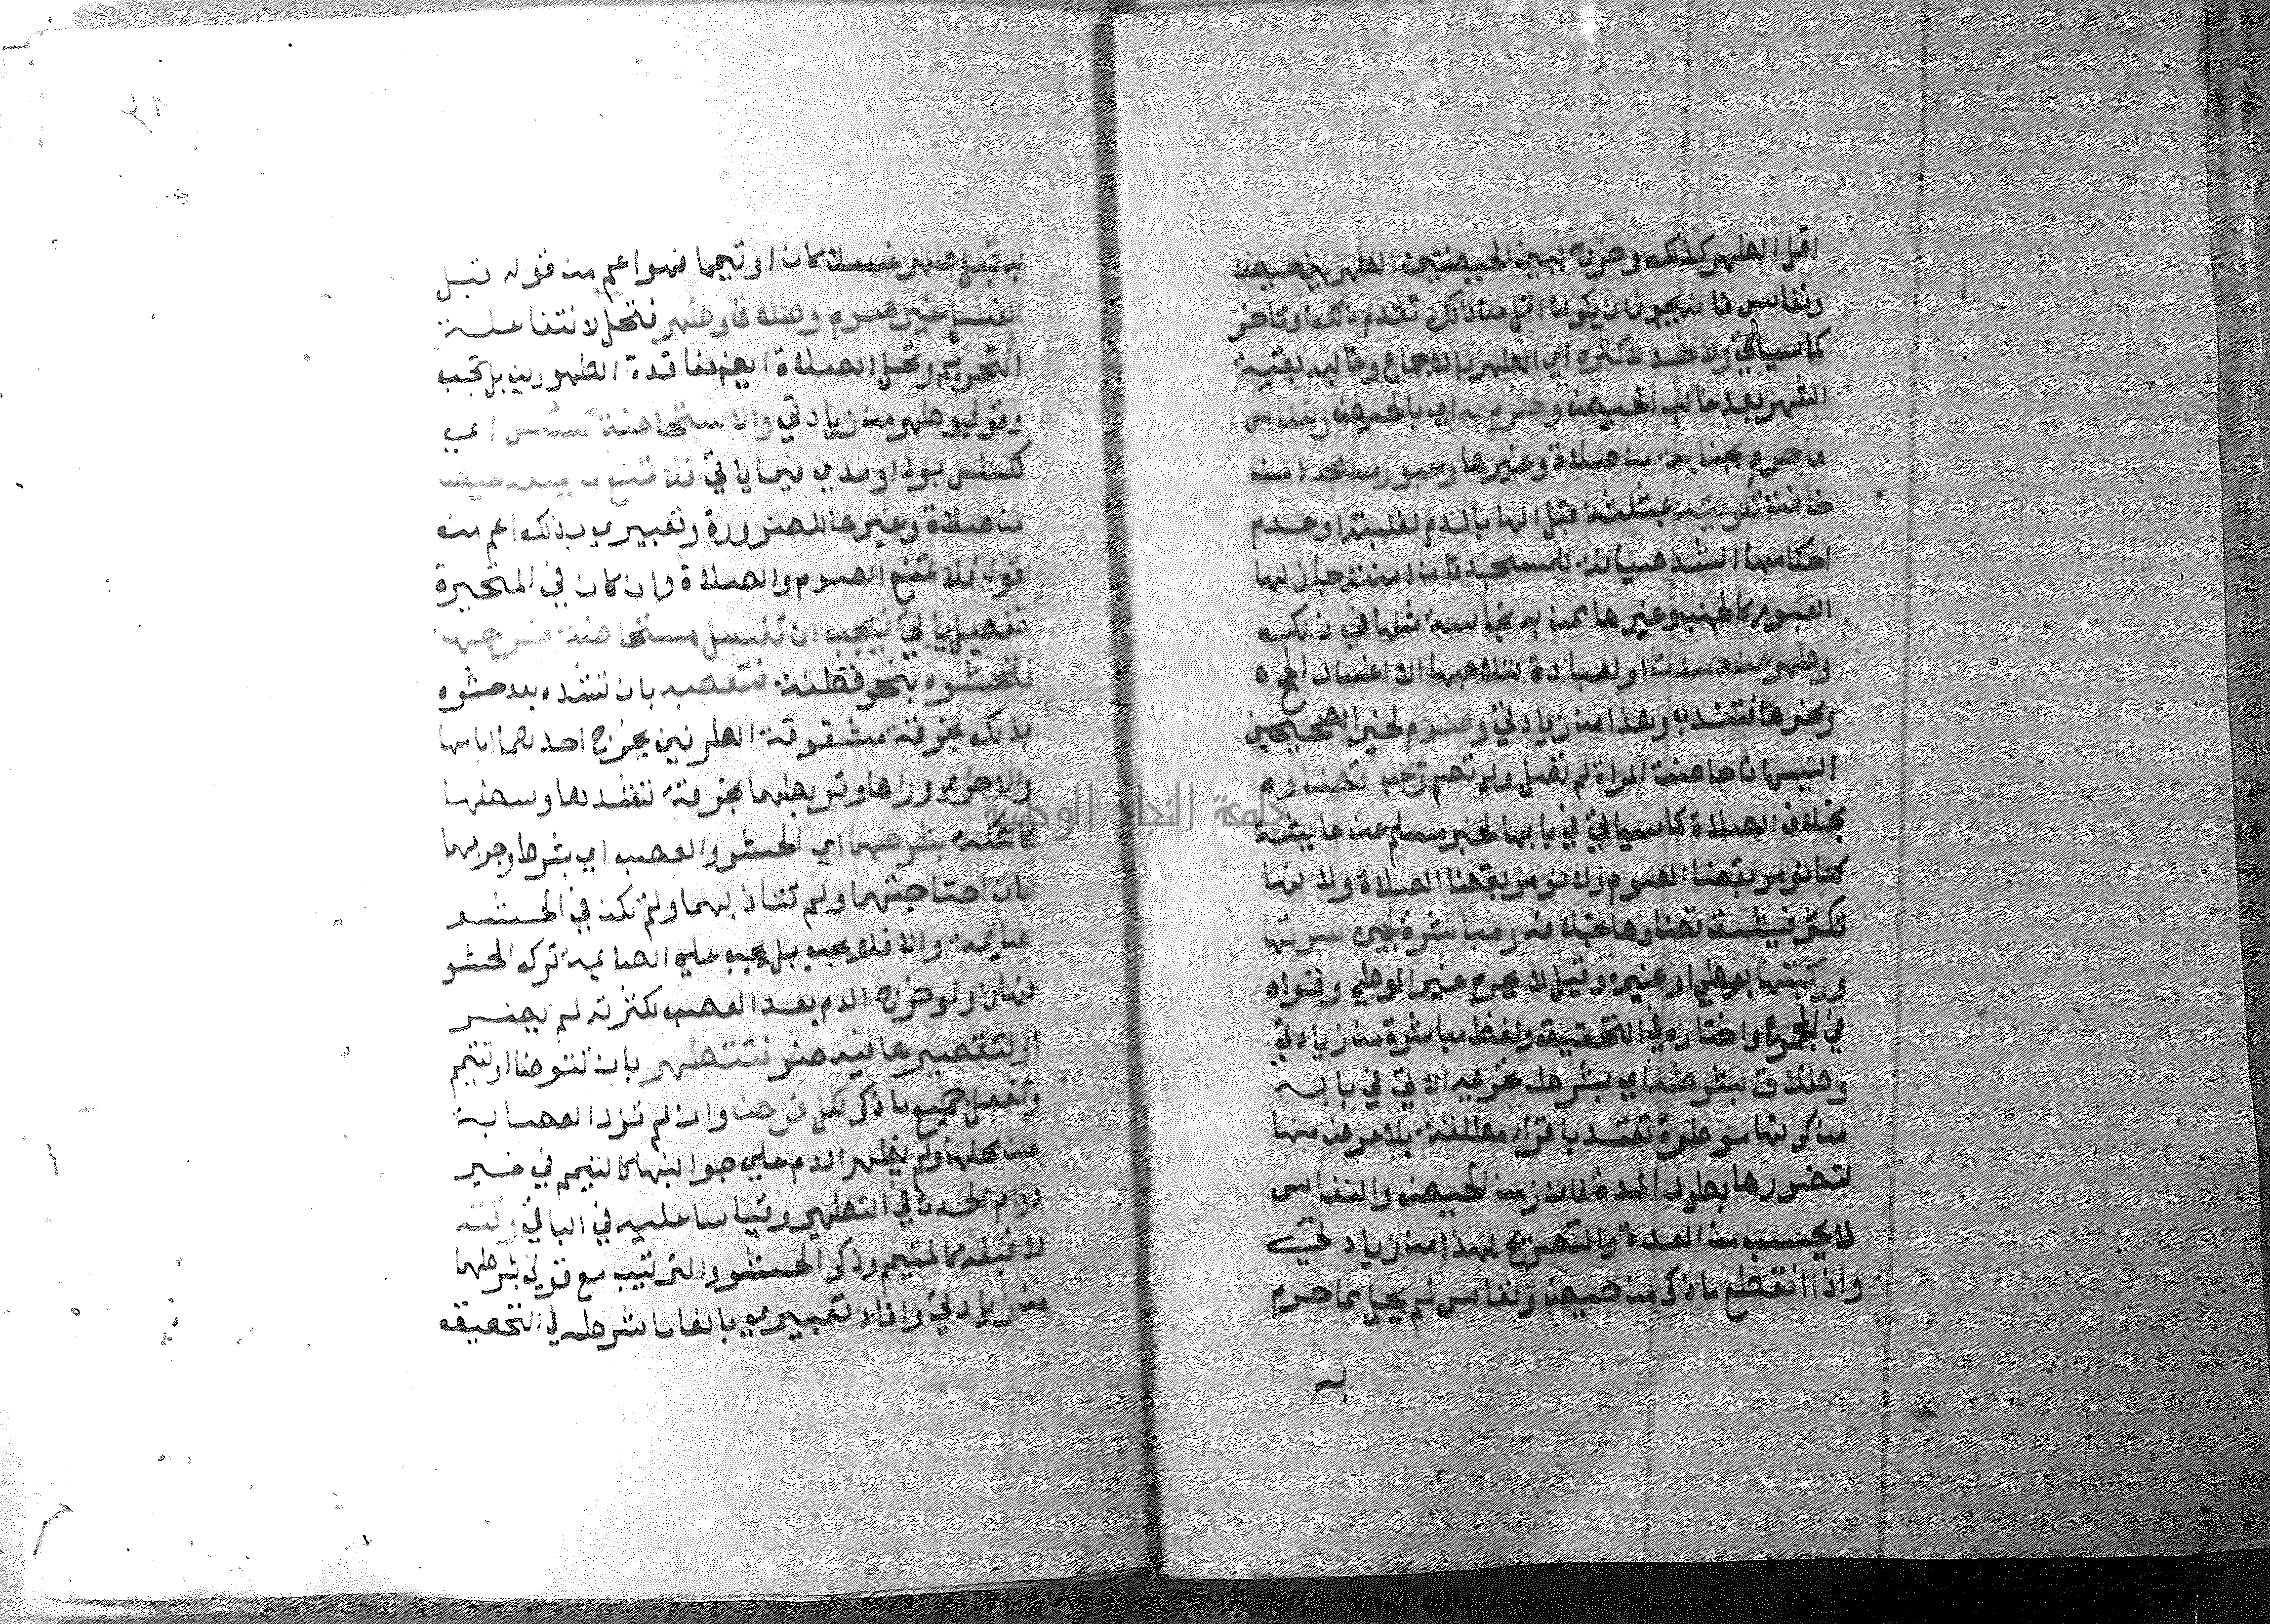 اقل الطهر كذلك وخرج ببين الحيضتين الطهر بين حيض
ونفاس فانه يجوز ان يكون اقل من ذلك تقدم ذلك او تاخر
كما سياتي ولا حد لاكثره اي الطهر بالاجماع وغالبه بقية
الشهر بعد غالب الحيض وحرم به اي بالحيض وبنفاس
ما حرم بجنابة من صلاة وغيرها وعبور مسجد ان
خافت تلويثه بمثلثة قبل الها بالدم لغلبته او عدم
احكامها الشد صيانة للمسجد فان امنته جاز لها
العبور كالجنب وغيرها ممن به نجاسة مثلها في ذلك
وطهر عن حدث او لعبادة لتلاعبها الا اغسال الحج
ونحوها فتندب وهذا من زيادتي وصوم لخبر الصحيحين
اليس اذا حاضت المراة لم تصل ولم تصم ويجب قضاوه
بخلاف الصلاة كما سياتي في بابها لخبر مسلم عن عايشة
كنا نومر بقضا الصوم ولا نومر بقضا الصلاة ولانها
تكثر فيشق قضاوها بخلافه ومباشرة ما بين سرتها
وركبتها بوطي او غيره وقيل لا يحرم غير الوطي وقواه
في المجموع واختاره في التحقيق ولفظ مباشرة من زيادتي
وطلاق بشرطه اي بشرط تحريمه الاتي في بابه
من كونها موطوة تعتد باقراء مطلقة بلا عوض منها
لتضررها بطول المدة فان زمن الحيض والنفاس
لا يحسب من العدة والتصريح بهذا من زيادتي
واذا انقطع ما ذكر من حيض ونفاس لم يحل مما حرم
به
به قبل طهر غسلا كان او تيمما فهو اعم من قوله قبل
الغسل غير صوم وطلاق وطهر فتحل لانتفا علة
التحريم وتحل الصلاة ايضا لفاقدة الطهورين بل تجب
وقولي وطهر من زيادتي والاستحاضة كسلس اي
كسلس بول او مذي فيما ياتي فلا تمنع ما يمنعه حيض
من صلاة وغيرها للضرورة وتعبيري بذلك اعم من
قوله فلا تمنع الصوم والصلاة وان كان في المتحيرة
تفصيل ياتي فيجب ان تغسل مستحاضة فرجها
فتحشوه بنحو قطنة فتعصبه بان تشده بعد حشوه
بذلك بخرقة مشقوقة الطرفين يخرج احدهما امامها
والاخر وراها وتربطهما بخرقة تشدها وسطها
كالتكة بشرطهما اي الحشو والعصب اي بشرط وجوبهما
بان احتاجتهما ولم تتاذ بهما ولم تكن في الحشو
صايمة والا فلا يجب بل يجب على الصايمة ترك الحشو
نهارا ولو خرج الدم بعد العصب لكثرته لم يضر
او لتقصيرها فيه ضر فتتطهر بان تتوضا او تتيمم
وتفعل جميع ما ذكر لكل فرض وان لم تزل العصابة
عن محلها ولم يظهر الدم على جوانبها كالتيمم في غير
دوام الحدث في التطهير وقياسا عليه في الباقي وقته
لا قبله كالمتيمم وذكر الحشو والترتيب مع قولي بشرطهما
من زيادتي وافاد تعبيري بالفا ما شرطه في التحقيق
جامعة النجاح الوطنية